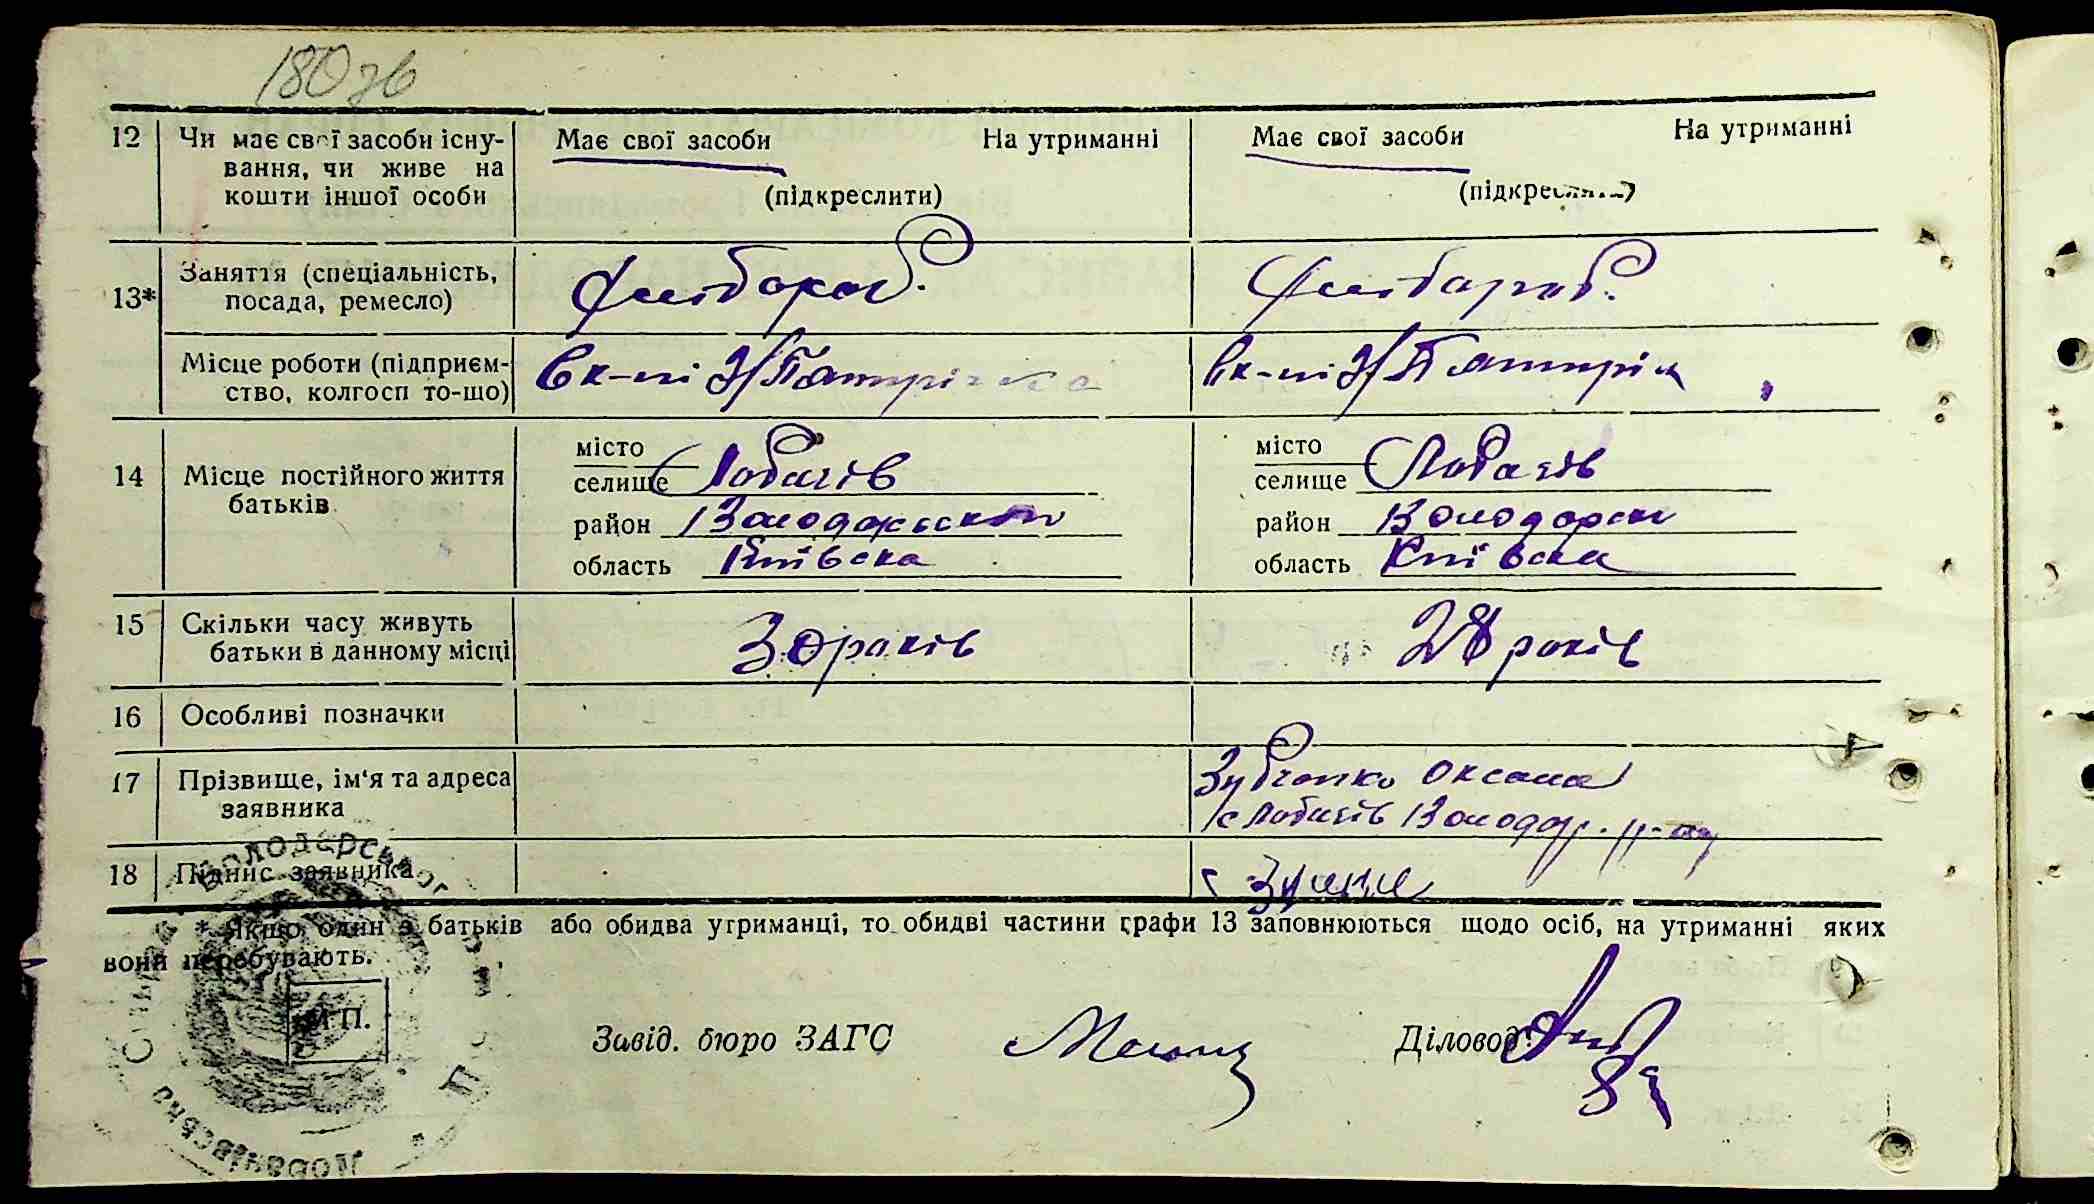 180 зв
12 Чи має свої засоби існу- Має свої засоби На утриманні Має свої засоби На утриманні
вання, чи живе на
кошти іншої особи (підкреслити) (підкреслити)
13* Заняття (спеціальність,
посада, ремесло) Хлібороб. Хлібороб.
Місце роботи (підприєм- в к-пі З/Пятирічка в к-пі З/Пятиріч
ство, колгосп то-що)
місто місто
14 Місце постійного життя селище Лобачів селище Лобачів
батьків район Володарський район Володарськ
область Київска область Київска
15 Скільки часу живуть
батьки в данному місці 30 років 28 років
16 Особливі позначки
17 Прізвище, ім'я та адреса Зубченко Оксана
заявника с Лобачів Володар. р-ну
18 Підпис заявника
* Якщо один з батьків або обидва утриманці, то обидві частини графи 13 заповнюються щодо осіб, на утриманні яких
вони перебувають.
М П.
Завід. бюро ЗАГС Діловод
Володарського
Лобачівська